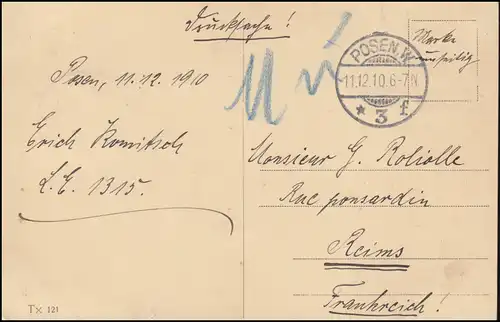 Drucksache!
Posen, 11.12.1910
Erich Komitsch
L.E. 1315.
Tx 121
POSEN.W.
11.12.10.6-7N
* 3 f
Marke
Monsieur G. Roliolle
Rue ponsardin
Reims
Frankreich!